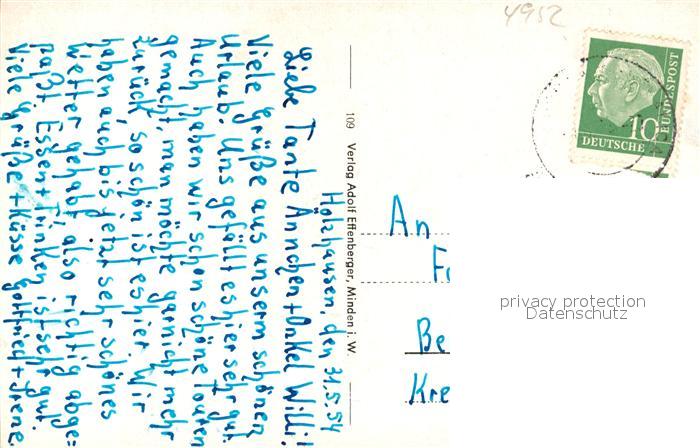 4952
Hölzhausen, den 31.5.54
Liebe Tante Ännchen + Onkel Willi!
Viele Grüße aus unserm schönen
Urlaub. Uns gefällt es hier sehr gut.
Auch haben wir schon schöne Touren
gemacht, man möchte garnicht mehr
zurück, so schön ist es hier. Wir
haben auch bis jetzt sehr schönes
Wetter gehabt, also richtig abge=
paßt. Essen + Trinken ist sehr gut.
Viele Grüße + Küsse Gottfried + Irene
109 Verlag Adolf Effenberger, Minden i. W.
10
DEUTSCHE
BUNDESPOST
An
F
Be
Kre
privacy protection
Datenschutz